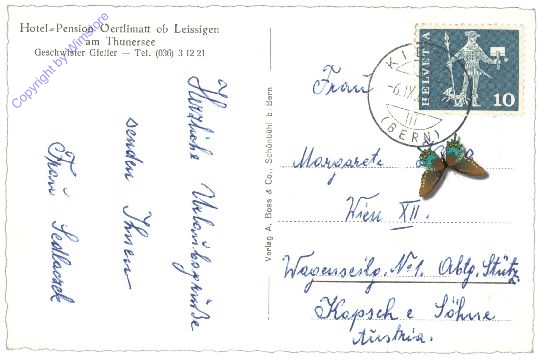 Hotel-Pension Oertlimatt ob Leissigen
am Thunersee
Geschwister Gfeller — Tel. (036) 3 12 21
Copyright by Wimstore
Herzliche Urlaubsgrüße
senden Ihnen
Frau Sedlaczek
Verlag A. Boss & Co., Schönbühl b. Bern
HELVETIA
10
-6.IX.
(BERN)
Frau
Margarete
Wien XII.
Wagenseilg. No 1. Abtg. Stütz.
Kapsch & Söhne
Austria.